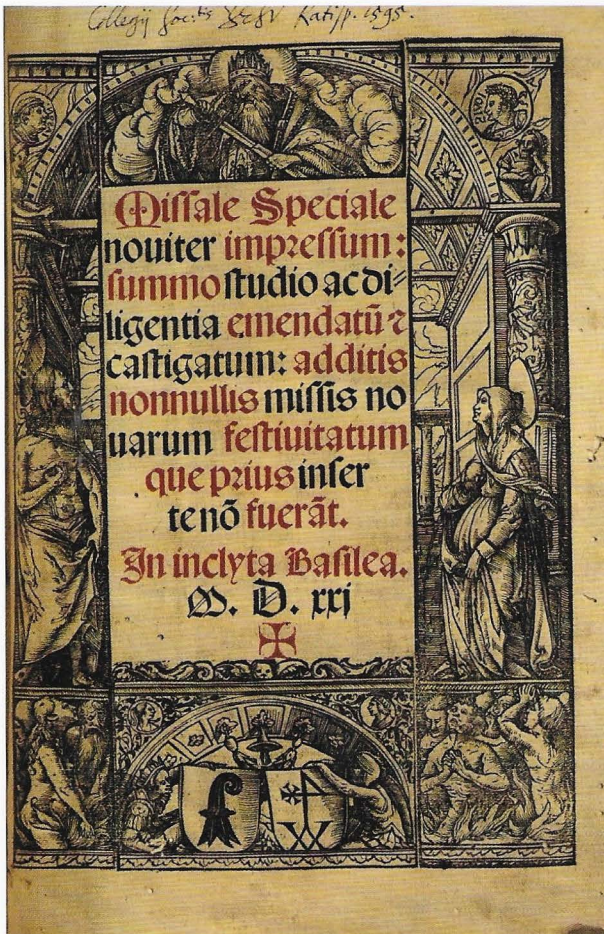 Collegij Soc:tis IESV Ratisp. 1595.
Missale Speciale
nouiter impressum:
summo studio ac di⸗
ligentia emendatū ⁊
castigatum: additis
nonnullis missis no
uarum festiuitatum
que prius inser
te nō fuerāt.
In inclyta Basilea.
M. D. xxj